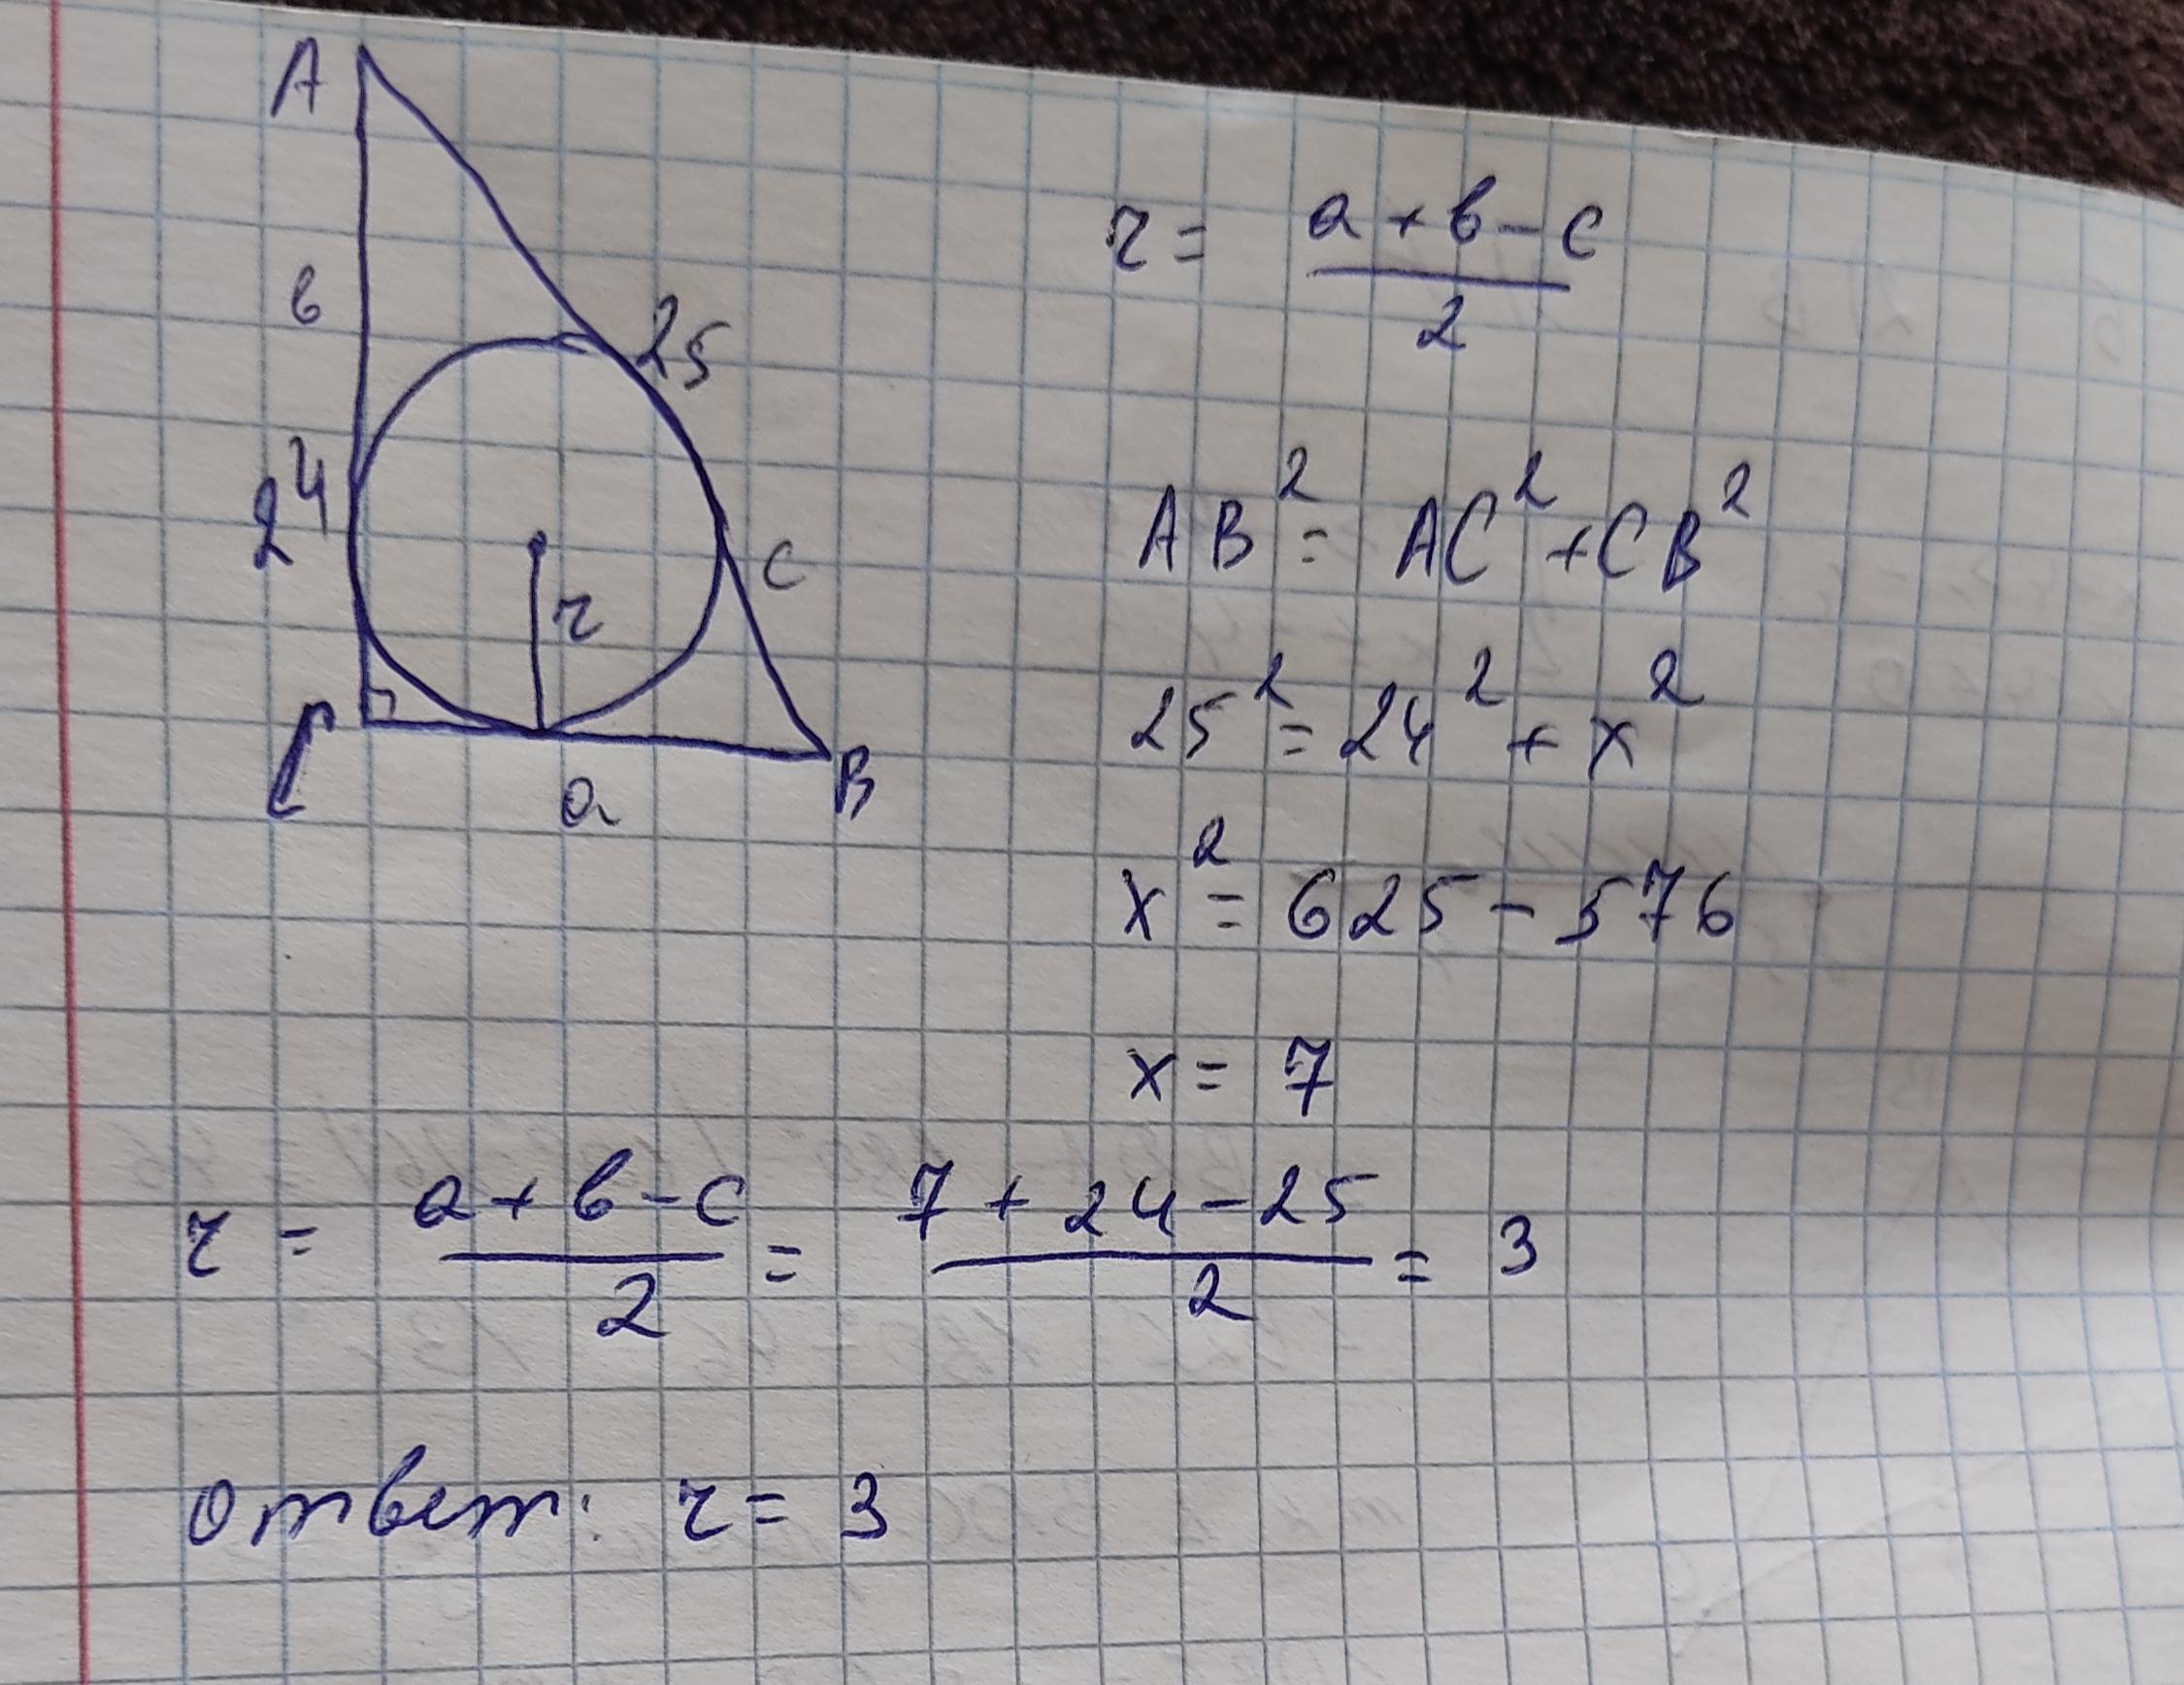 A
в
25
24
c
r
C
a
B
r = a + в - c / 2
AB² = AC² + CB²
25² = 24² + x²
x² = 625 - 576
x = 7
r = a + в - c / 2 = 7 + 24 - 25 / 2 = 3
Ответ: r = 3